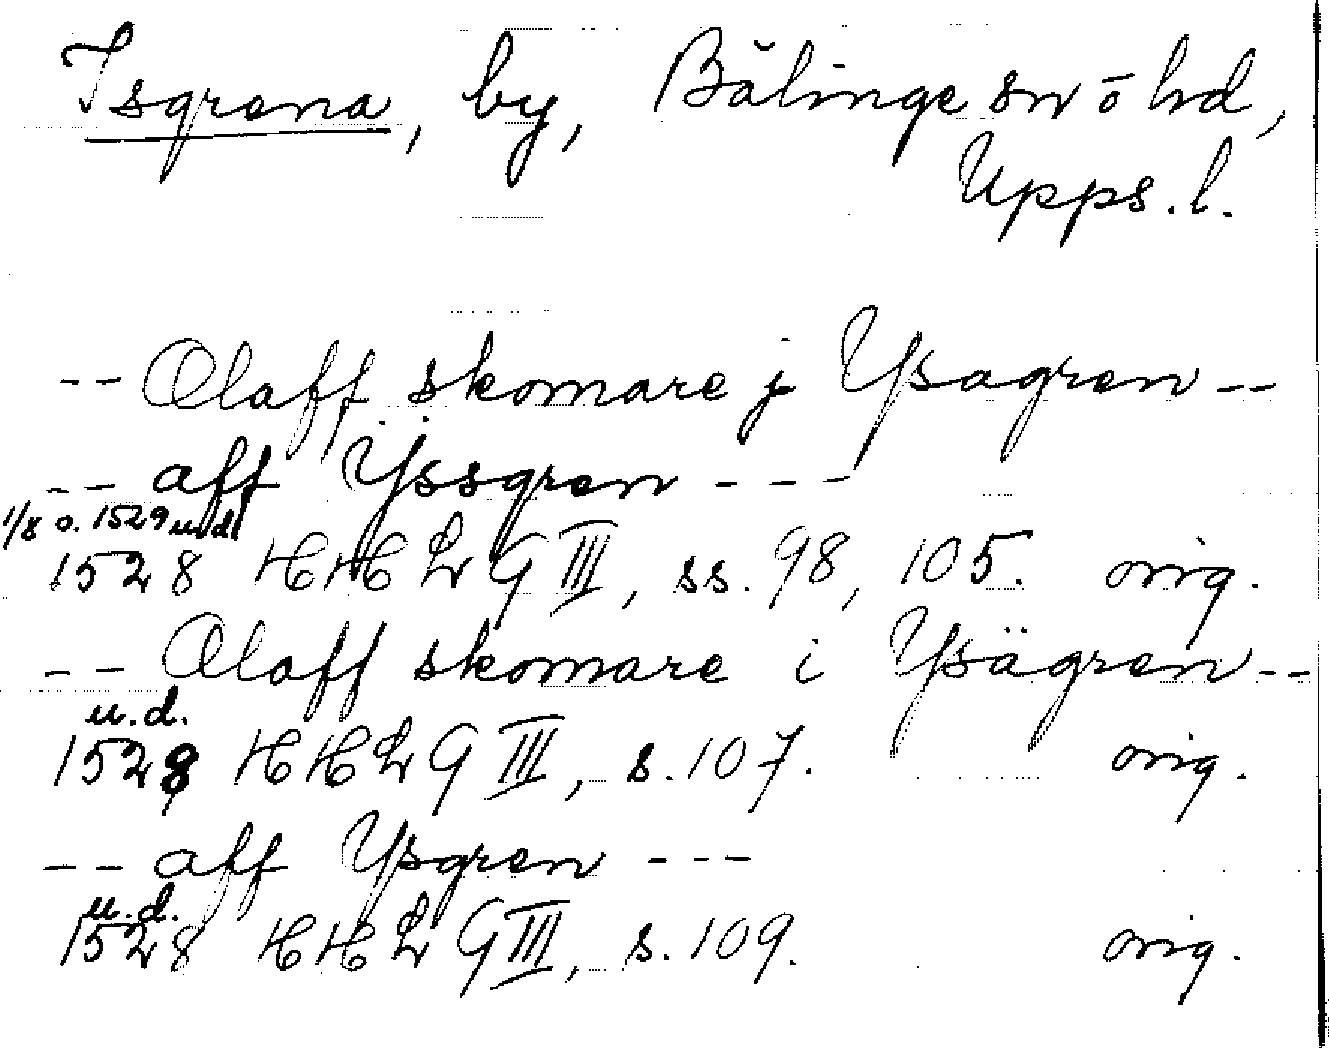 Isgrena, by, Bälinge sn o hd,
Upps. l.
-- Olaff skomare j Ysagren --
-- aff Yssgren ---
1/8 o. 1529 u.d.
1528 HHL G III, ss. 98, 105. orig.
-- Olaff skomare i Ysägren --
u.d.
1529 HHL G III, s. 107. orig.
-- aff Ysgren ---
u.d.
1528 HHL G III, s. 109. orig.